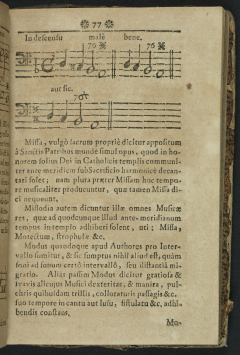 77
In descensu malè bene.
76 76
aut sic.
76
Missa, vulgò sacrum propriè dicitur appositum
à Sanctis Patribus mundè simul opus, quod in ho-
norem solius Dei in Catholicis templis communi-
ter ante meridiem sub Sacrificio harmonicè decan-
tari solet; nam plura præter Missam hoc tempo-
re musicaliter producuntur, quæ tamen Missa di-
ci nequeunt.
Missodia autem dicuntur illæ omnes Musicæ
res, quæ ad quodcumque illud ante-meridianum
tempus in templo adhiberi solent, uti; Missa,
Motectum, strophulæ &c.
Modus quandoque apud Authores pro Inter-
vallo sumitur, & sic sumptus nihil aliud est, quàm
soni ad sonum certò intervallò, seu distantiâ mi-
gratio. Aliàs passim Modus dicitur gratiosa &
travis alicujus Musici dexteritas, & manira, pul-
chris quibusdam trillis, colloraturis passagis &c.
suo tempore in cantu aut lusu, fistulatu &c. adhi-
bendis constans.
Mu-